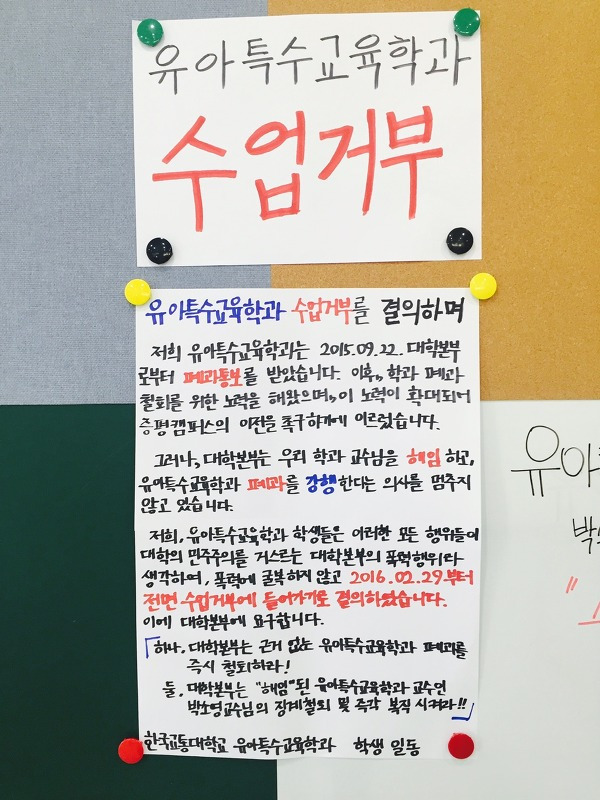 유아특수교육학과
수업거부
유아특수교육학과 수업거부를 결의하며
저희 유아특수교육학과는 2015.09.22. 대학본부
로부터 폐과통보를 받았습니다. 이후, 학과 폐과
철회를 위한 노력을 해왔으며, 이 노력이 확대되어
증평캠퍼스의 이전을 촉구하기에 이르렀습니다.
그러나, 대학본부는 우리 학과 교수님을 해임 하고,
유아특수교육학과 폐과를 강행한다는 의사를 멈추지
않고 있습니다.
저희, 유아특수교육학과 학생들은 이러한 모든 행위들이
대학의 민주주의를 거스르는 대학본부의 폭력행위라
생각하여, 폭력에 굴복하지 않고 2016.02.29.부터
전면 수업거부에 들어가기로 결의하였습니다.
이에 대학본부에 요구합니다.
「하나, 대학본부는 근거 없는 유아특수교육학과 폐과를
즉시 철퇴하라!
둘, 대학본부는 "해임"된 유아특수교육학과 교수인
박소영교수님의 징계철회 및 즉각 복직 시켜라!!」
한국교통대학교 유아특수교육학과 학생 일동
유아
박
"